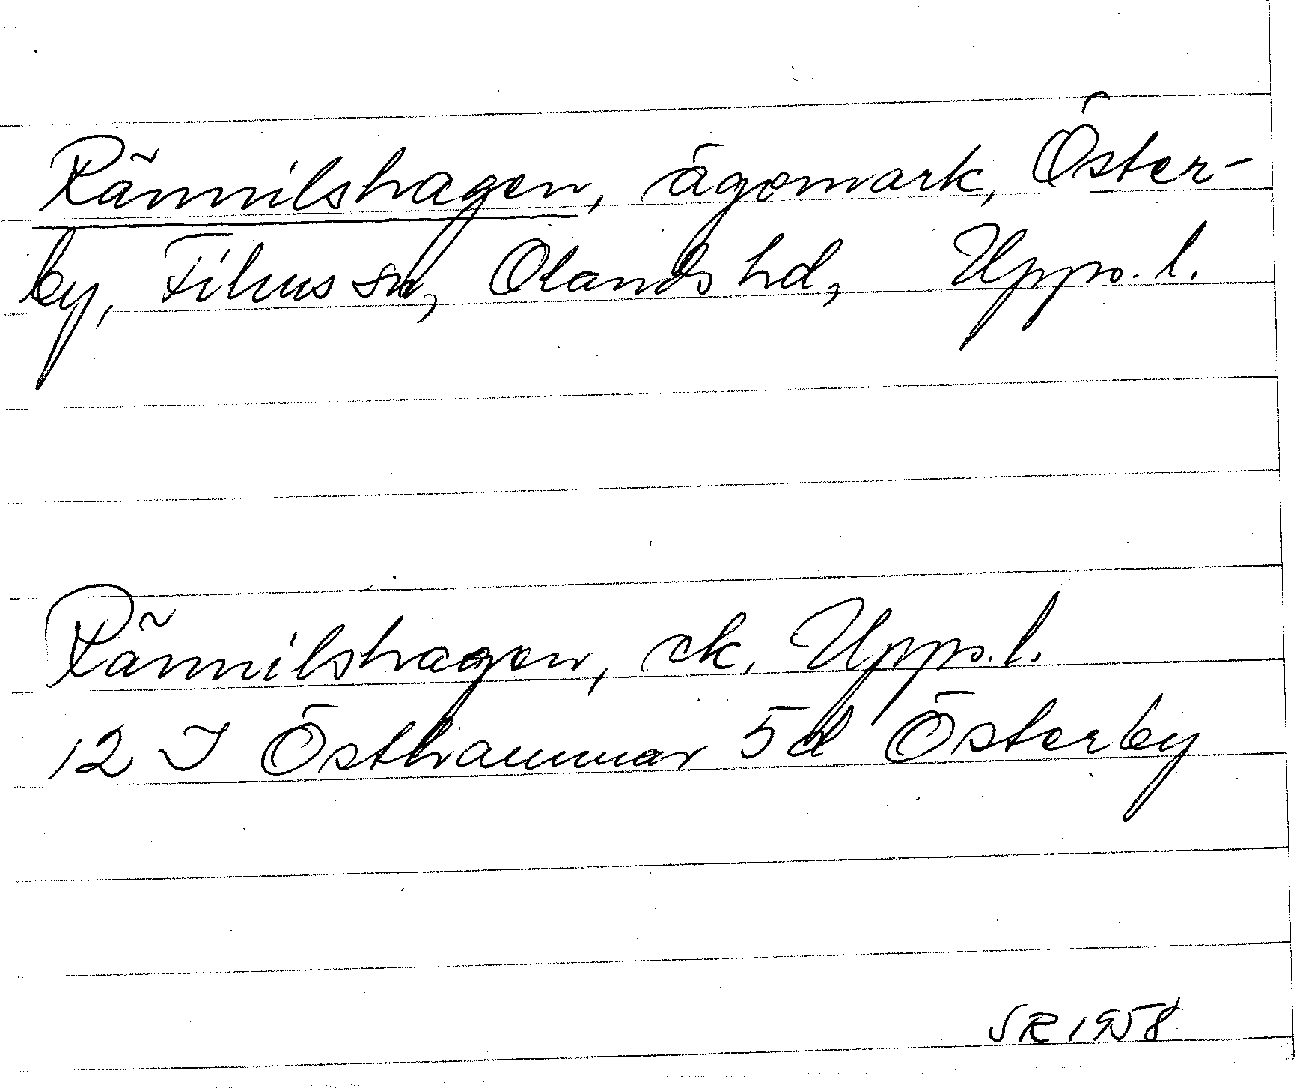 Rännilshagen, ägomark, Öster-
by, Films sn, Olands hd, Upps. l.
Rännilshagen, ek. Upps. l.
12 I Östhammar 5d Österby
SR 1958